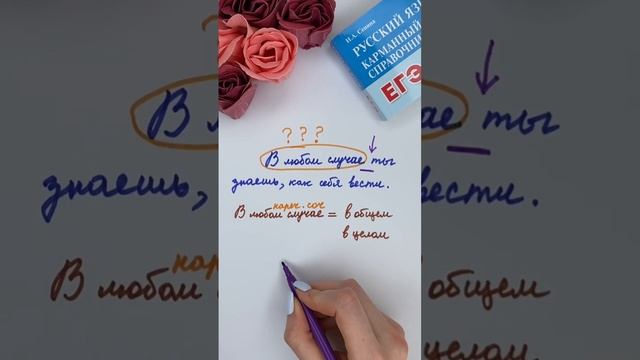 Н.А. Сенина
РУССКИЙ ЯЗ
КАРМАННЫЙ
СПРАВОЧНИ
ЕГЭ
? ? ?
В любом случае ты
знаешь, как себя вести.
нареч. соч
В любом случае = в общем
в целом